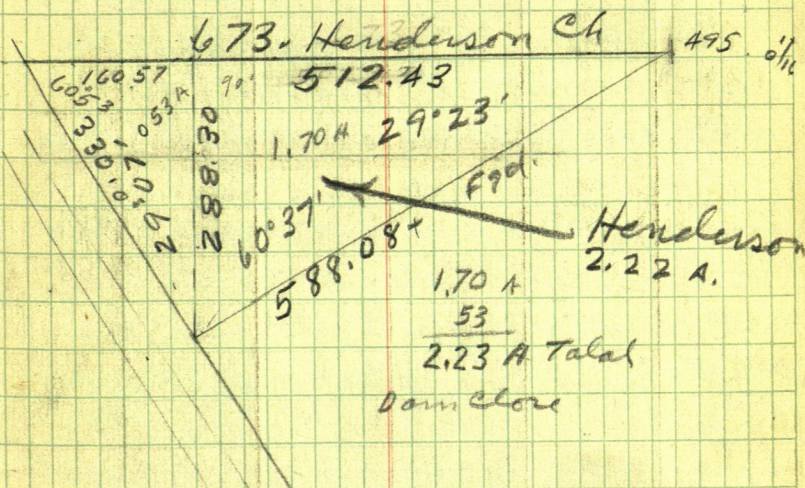 673. Henderson Ch
495
160.57
90'
512.43
60°53'
053 A
330.0
29°07'
288.30
1.70 A
29°23'
60°37'
588.08+
Fgd.
Henderson
2.22 A.
1.70 A
53
2.23 A Total
Darn Close